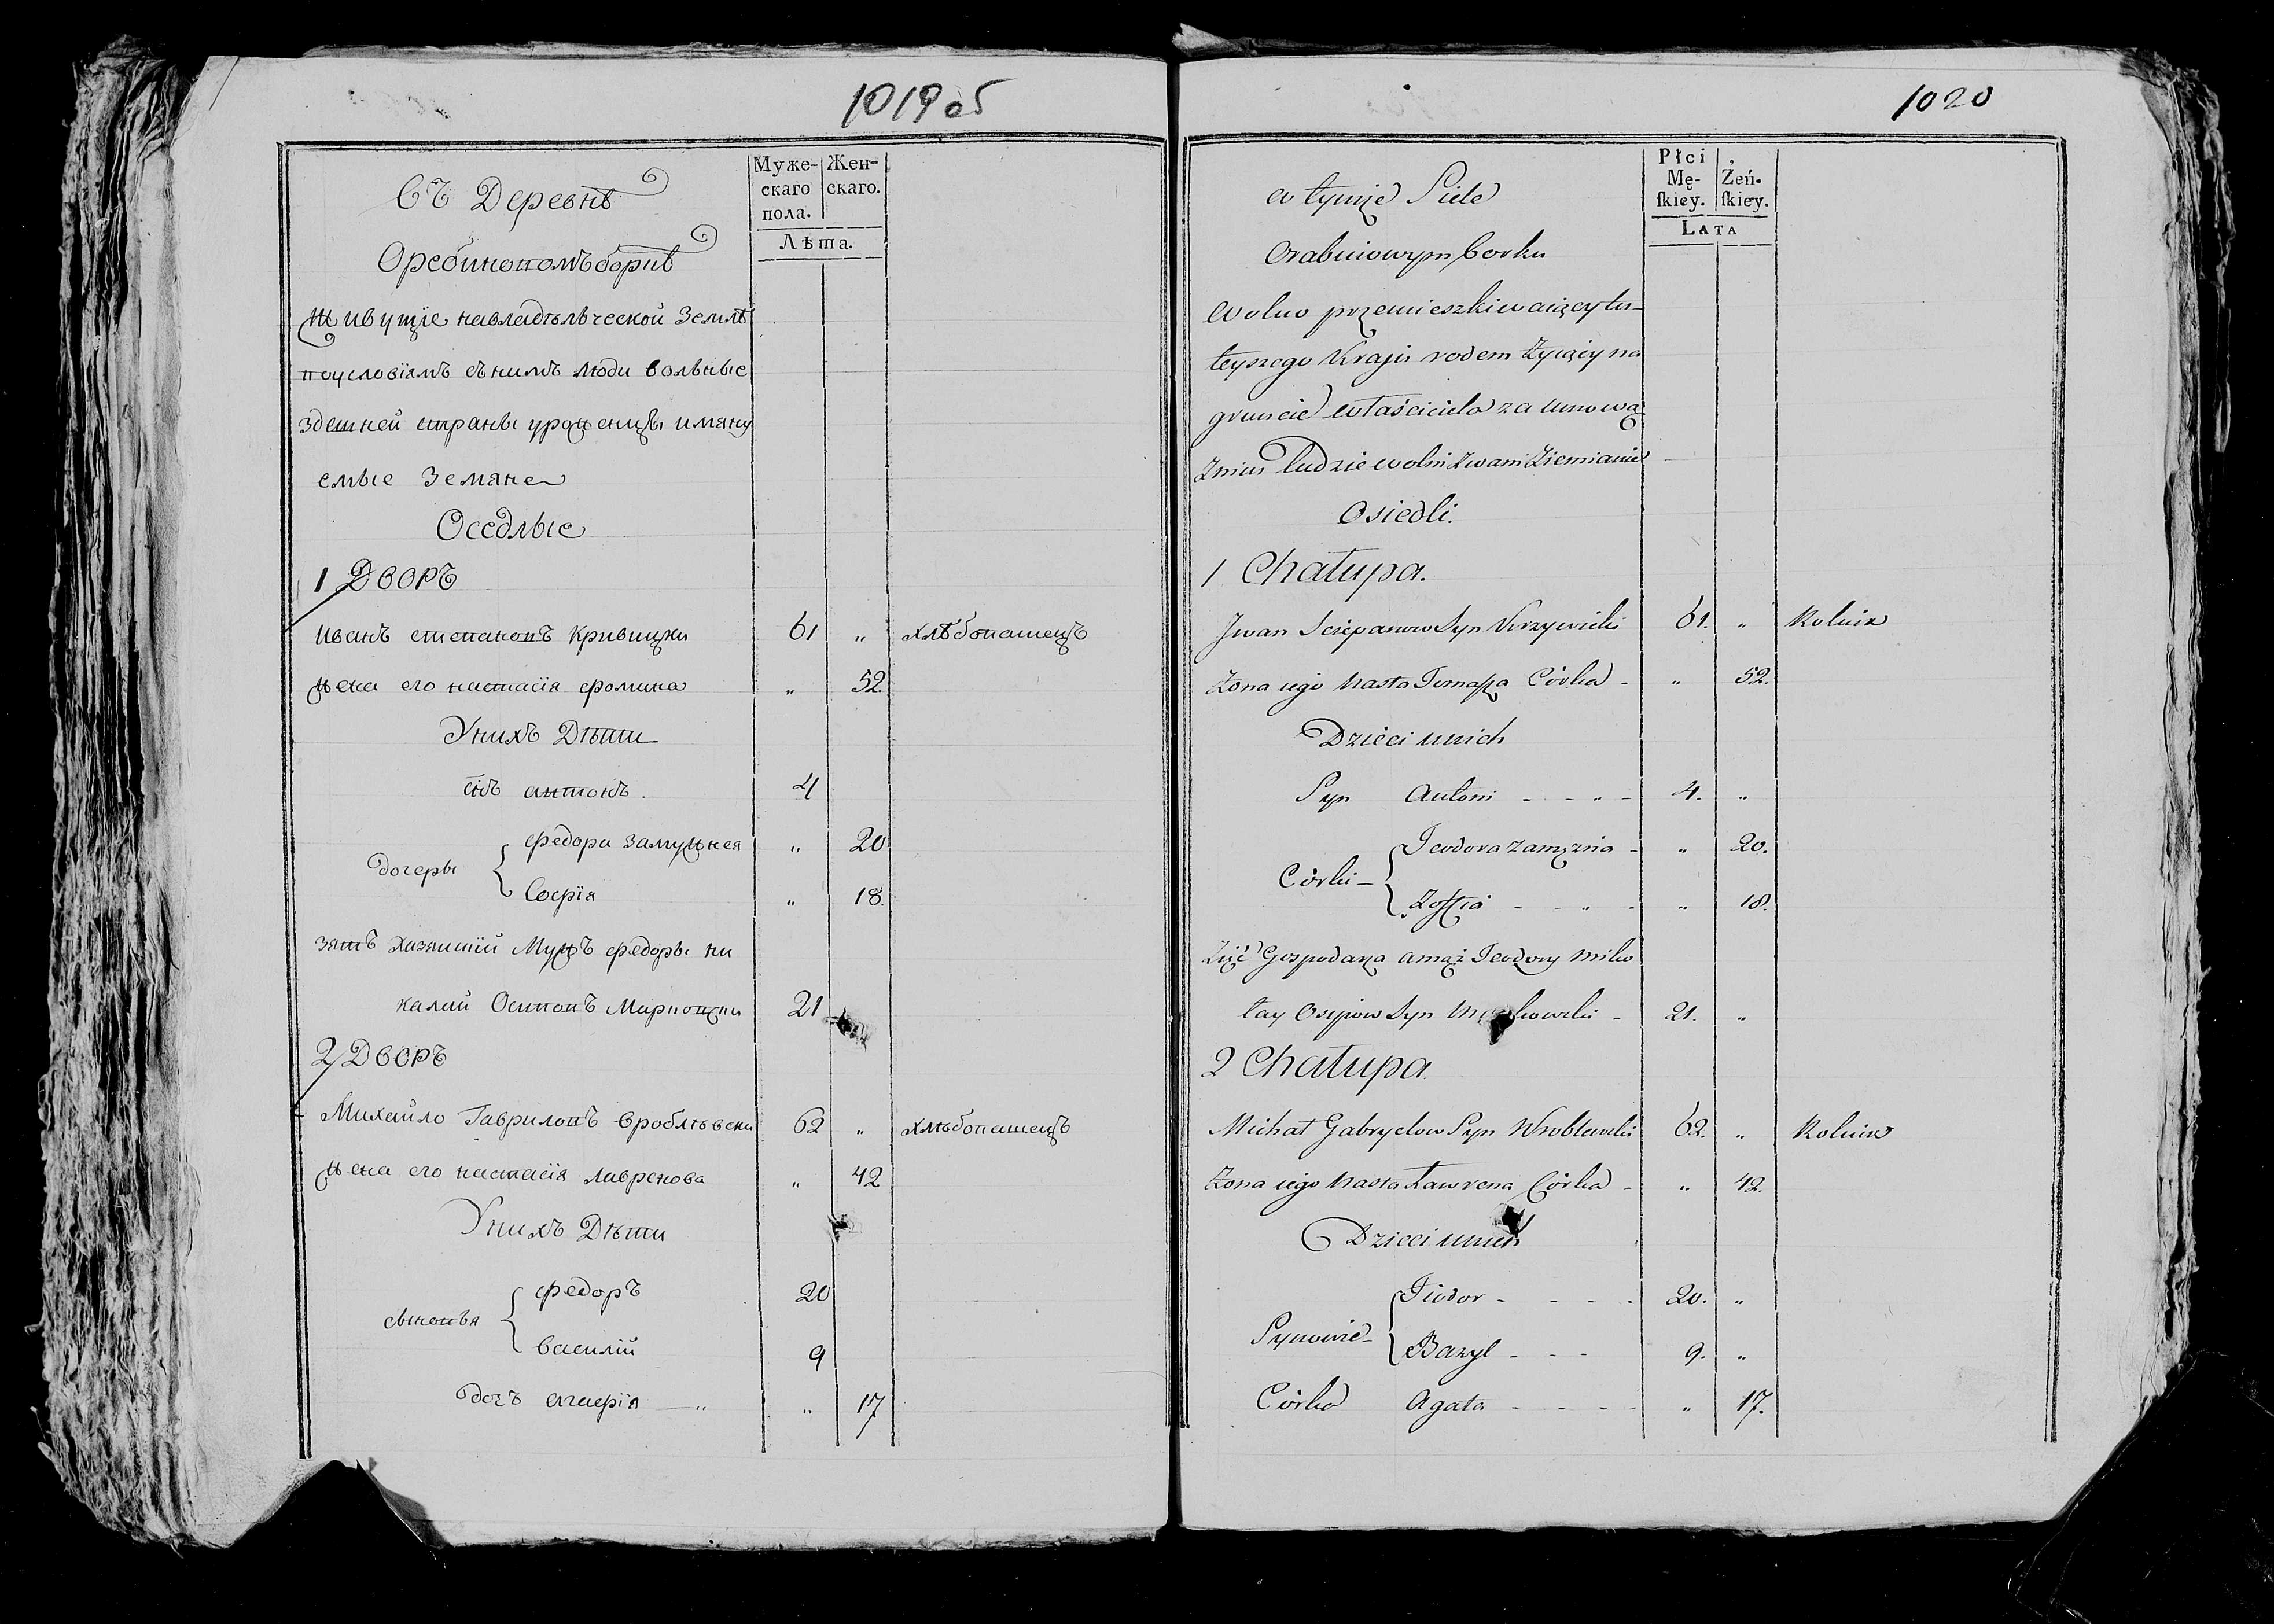 1019 об
Муже-
скаго
пола.
Жен-
скаго.
Лѣта.
Въ Деревнѣ
Оребиновомъ боркѣ
Живущіе на владѣльческой Землѣ
по условіямъ съ нимъ люди вольные
здешней страны уроженцы имяну
емые Земяне
Оседлые
1 Дворъ
Иванъ степановъ Кривицки 61 „ хлѣбопашецъ
жена его настасія фомина „ 52.
У нихъ Дѣти
снъ антонъ. 4
дочеры
федора замужнея „ 20
Софія „ 18.
зять хазяискій Мужъ федоры ни
калай Осиповъ 21
2 Дворъ
Михайло Гавриловъ вроблѣвски 62 „ хлѣбопашецъ
жена его настасія лавренова „ 42
У нихъ Дѣти
сыновья
федоръ 20
василій 9
дочъ агафія — „ „ 17
1020
Płci
Mę-
ſkiey.
Żeń-
ſkiey.
LATA
w tymże Siele
Orabinowym borku
Wolno przemieszkiwaiący tu-
teyszego Kraju rodem Żyiący na
gruncie właściciela za umową
Znim ludzie wolni Zwani Ziemianie
Osiedli.
1 Chałupa.
Jwan Sciepanow Syn Krzywicki 61. „ Rolnik
Żona iego Nasta Tomasza Córka - „ 52.
Dzieci unich
Syn Antoni - - „ - 4. „
Córki -
Teodora zamężnia - „ 20.
Zofia - „ - „ 18.
Zięć Gospodarza a mąż Teodory Miko
łay Osipow Syn - 21. „
2 Chałupa
Michał Gabryelow Syn Wroblewski 62. „ Rolnik
Żona iego Nasta Ławrena Córka - „ 42.
Dzieci unich
Synowie -
Fiodor - - - - 20. „
Bazyl - - - 9. „
Córka Agata - - - - „ 17.